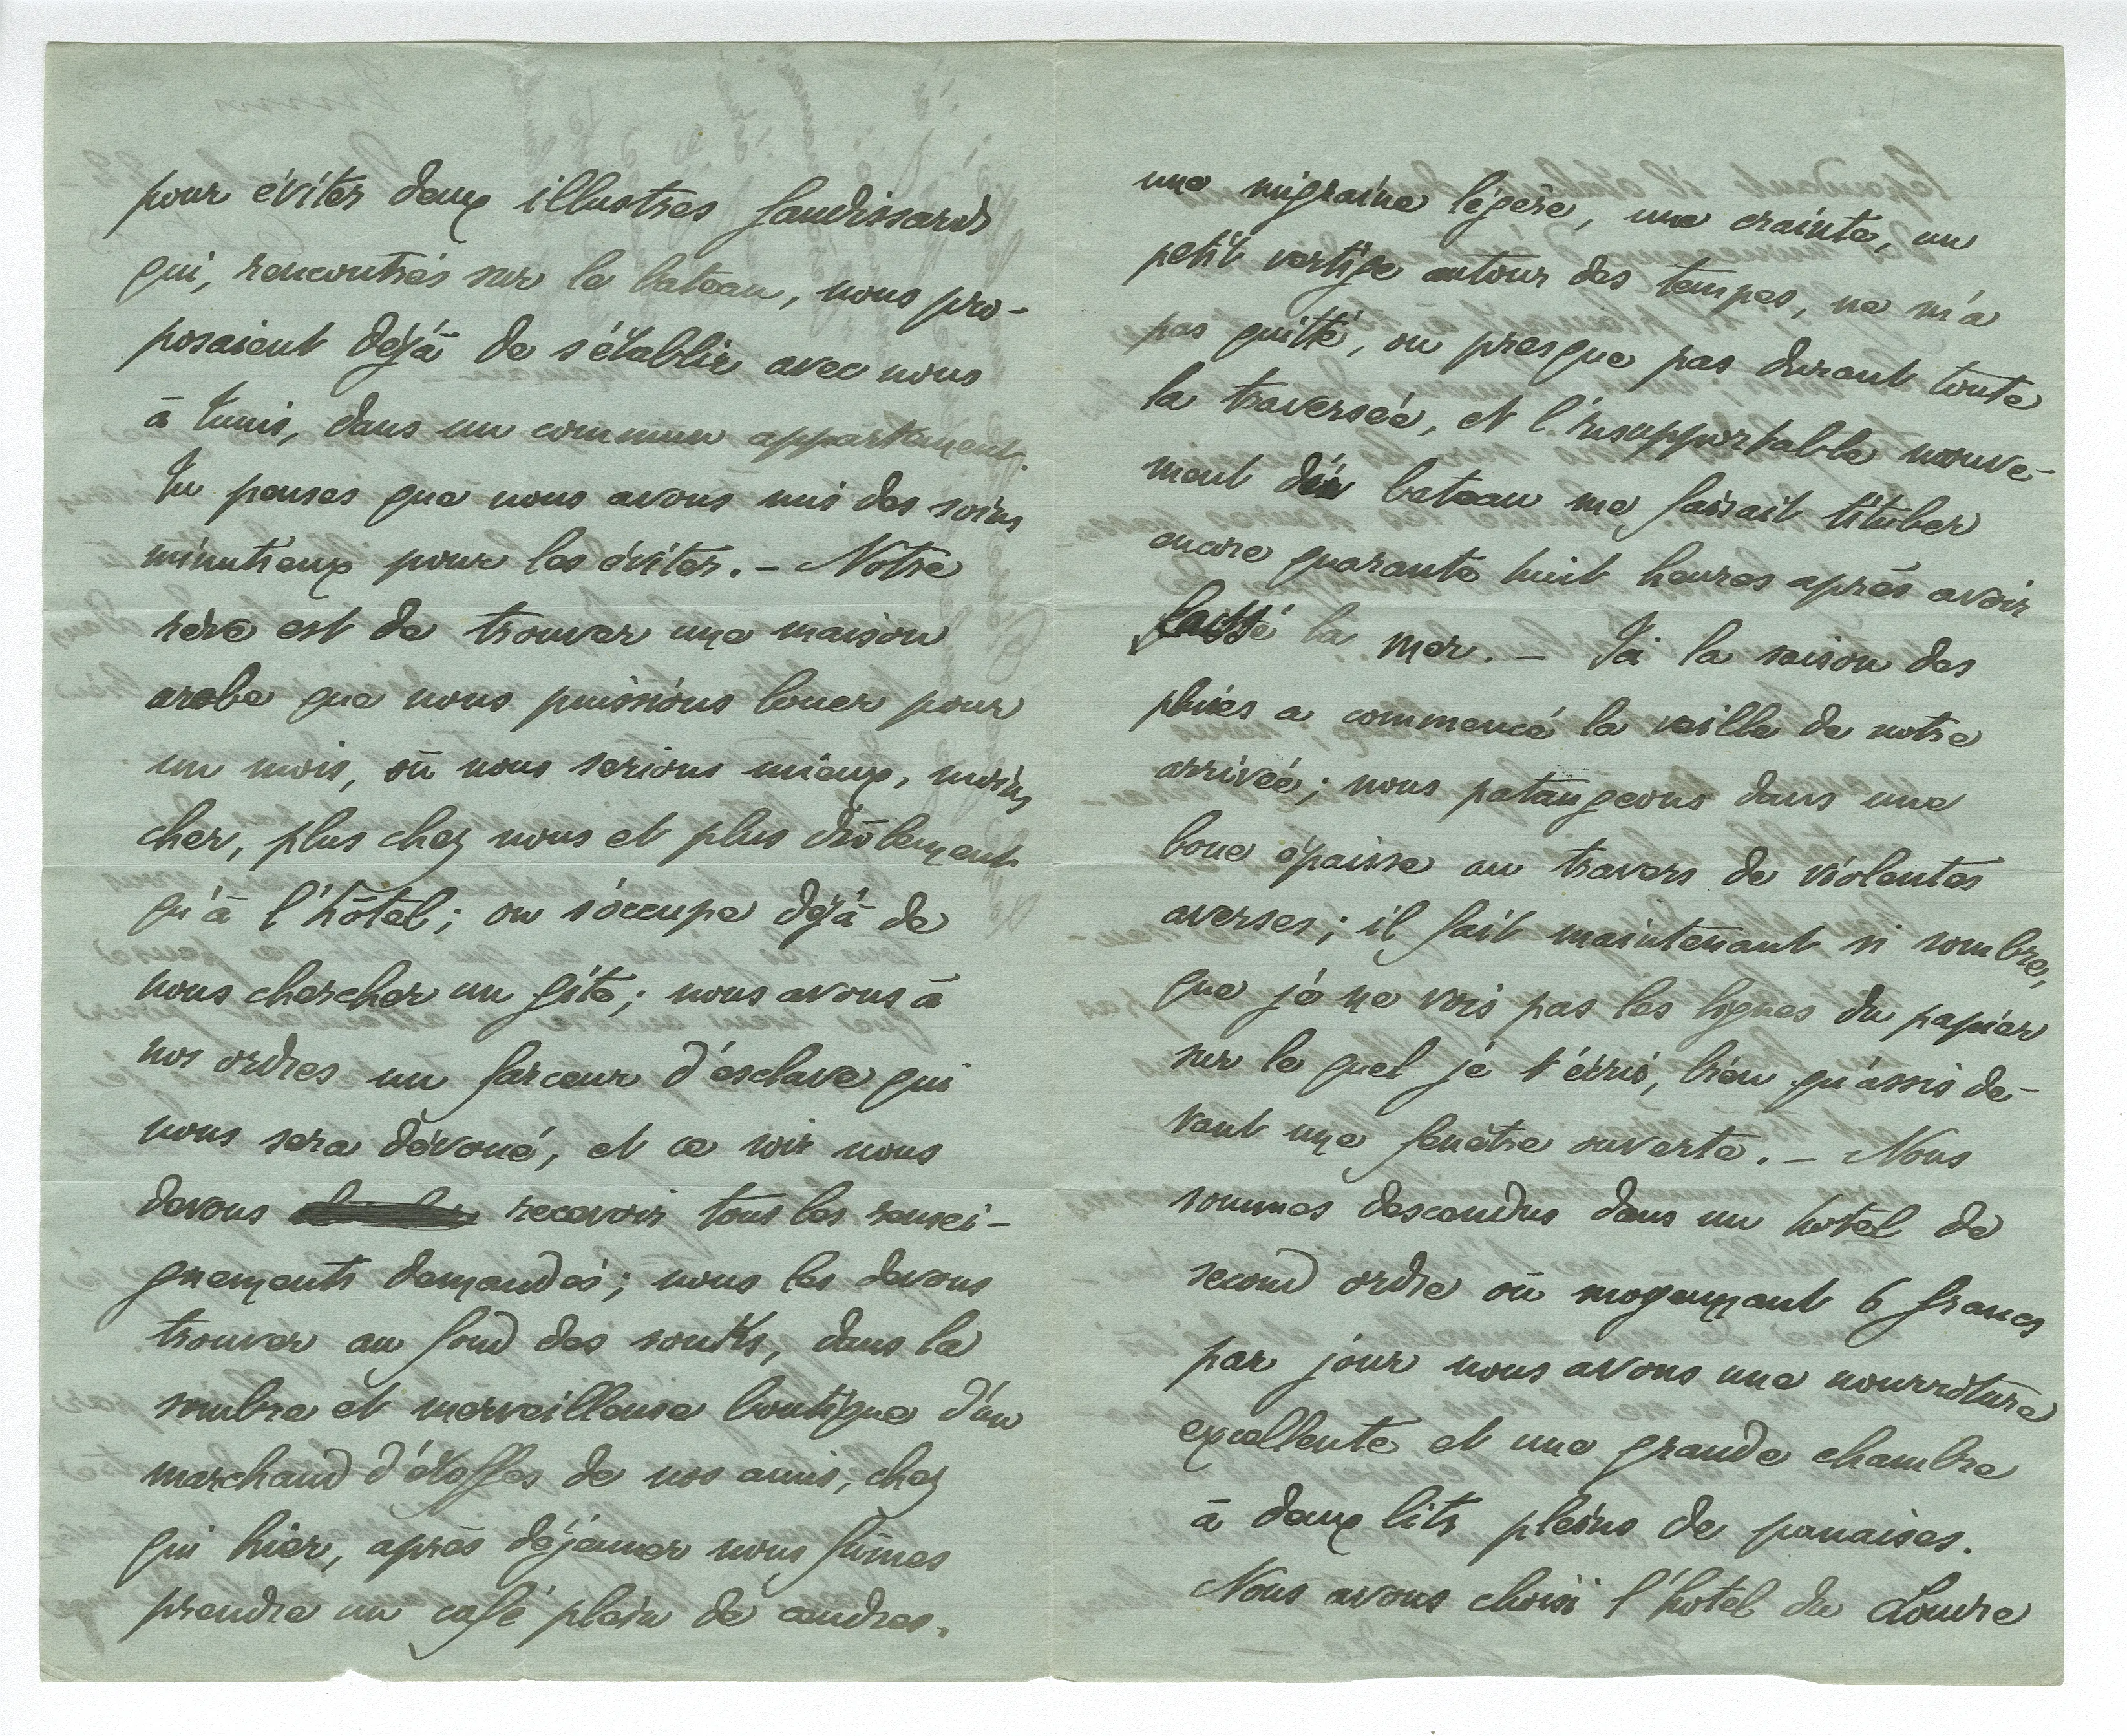 pour éviter deux illustres Gaudissards
qui, rencontrés sur le bateau, nous pro-
posaient déjà de s'établir avec nous
à Tunis, dans un commun appartement.
Tu penses que nous avons mis des soins
minutieux pour les éviter. – Notre
rêve est de trouver une maison
arabe que nous puissions louer pour
un mois, où nous serions mieux, moins
cher, plus chez nous et plus drôlement
qu'à l'hôtel; on s'occupe déjà de
nous chercher un gîte; nous avons à
nos ordres un farceur d'esclave qui
nous sera dévoué, et ce soir nous
devons recevoir tous les rensei-
gnements demandés; nous les devons
trouver au fond des souks, dans la
sombre et merveilleuse boutique d'un
marchand d'étoffes de nos amis, chez
qui hier, après déjeuner nous fûmes
prendre un café plein de cendres.
une migraine légère, une crainte, un
petit vertige autour des tempes, ne m'a
pas quitté, ou presque pas durant toute
la traversée, et l'insupportable mouve-
ment du bateau me faisait tituber
encore quarante huit heures après avoir
laissé la mer. – Ici la saison des
pluies a commencé la veille de notre
arrivée; nous pataugeons dans une
boue épaisse au travers de violentes
averses; il fait maintenant si sombre,
que je ne vois pas les lignes du papier
sur le quel je t'écris, bien qu'assis de-
vant une fenêtre ouverte. – Nous
sommes descendus dans un hotel de
second ordre où moyennant 6 francs
par jour nous avons une nourriture
excellente et une grande chambre
à deux lits pleins de punaises.
Nous avons choisi l'hotel du Louvre